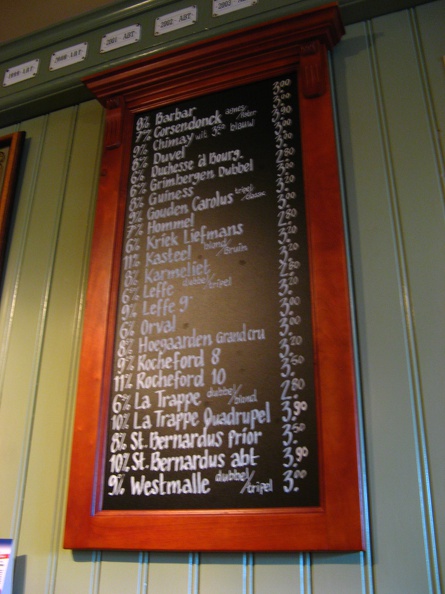 1999: ABT
2000: ABT
2001: ABT
2002: ABT
2003: ABT
8% Barbar 3.00
7% Corsendonck agnus/pater 3.00
9% Chimay wit 3.50 blauw
8% Duvel 3.00
6% Duchesse 'd Bourg. 3.00
6% Grimbergen Dubbel 2.80
8% Guiness 3.00
9% Gouden Carolus tripel/classic 3.20
7% Hommel 3.00
6% Kriek Liefmans 2.80
11% Kasteel blond/bruin 3.20
8% Karmeliet 3.20
6% Leffe dubbel/tripel 2.80
9% Leffe 9° 3.20
6% Orval 3.00
8% Hoegaarden Grand cru 3.00
9% Rocheford 8 3.20
11% Rocheford 10 3.50
6% La Trappe dubbel/blond 2.80
10% La Trappe Quadrupel 3.90
8% St. Bernardus prior 3.50
10% St. Bernardus abt 3.90
9% Westmalle dubbel/tripel 3.00